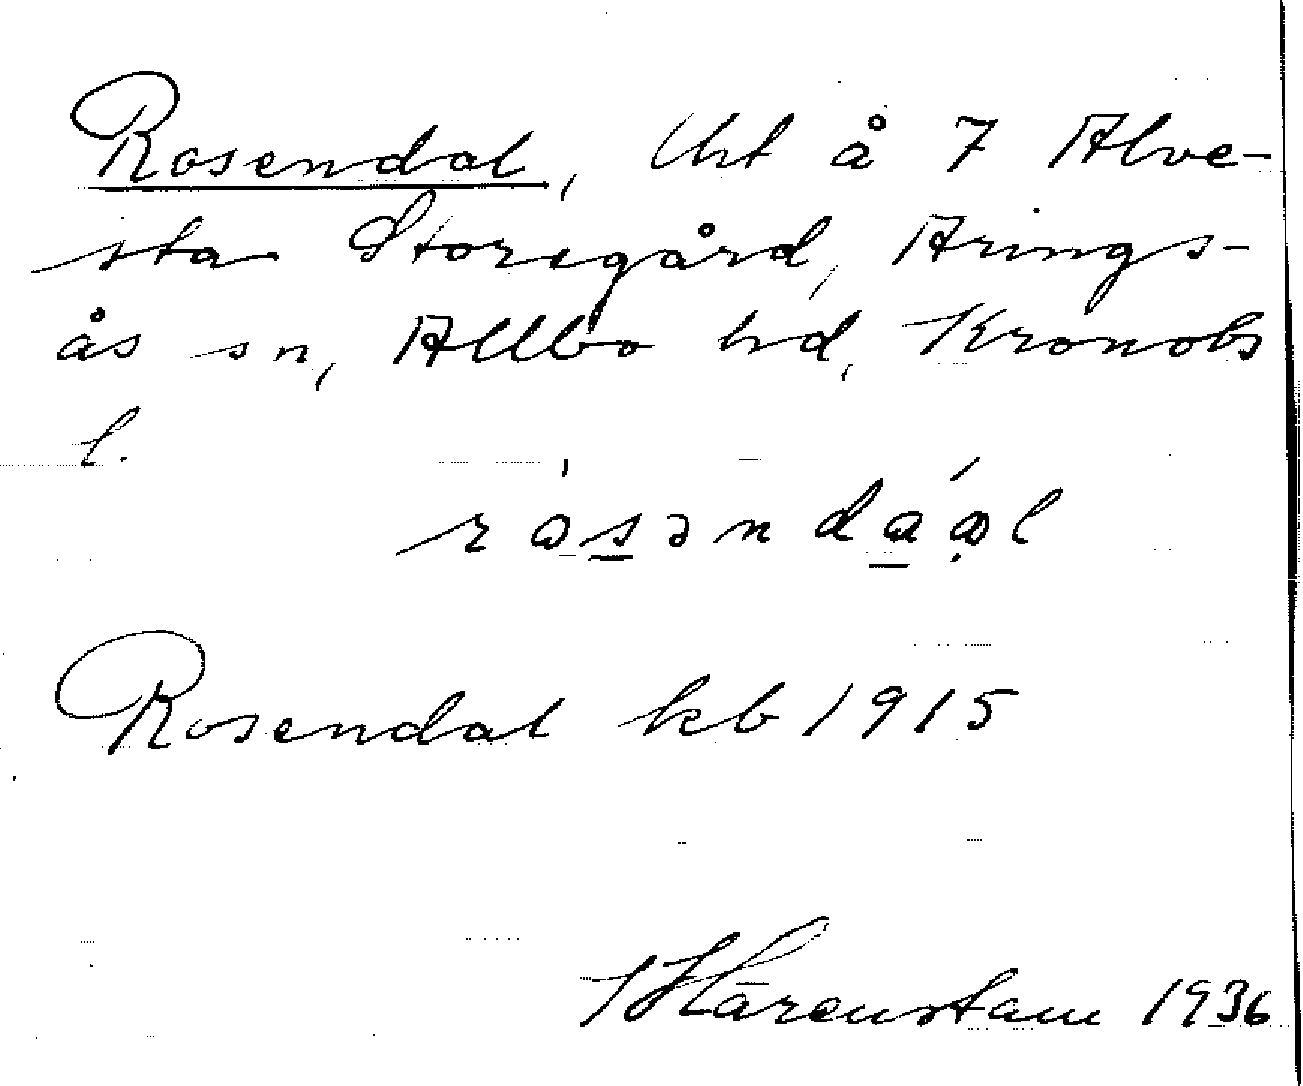 Rosendal, lht å 7 Alve-
sta Storegård, Arings-
ås sn, Allbo hd, Kronobs
l.
Rosendal kb 1915
Härenstam 1936